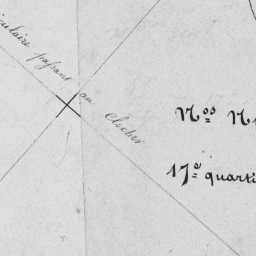 culaire passant au Clocher
Nos
17e quarti